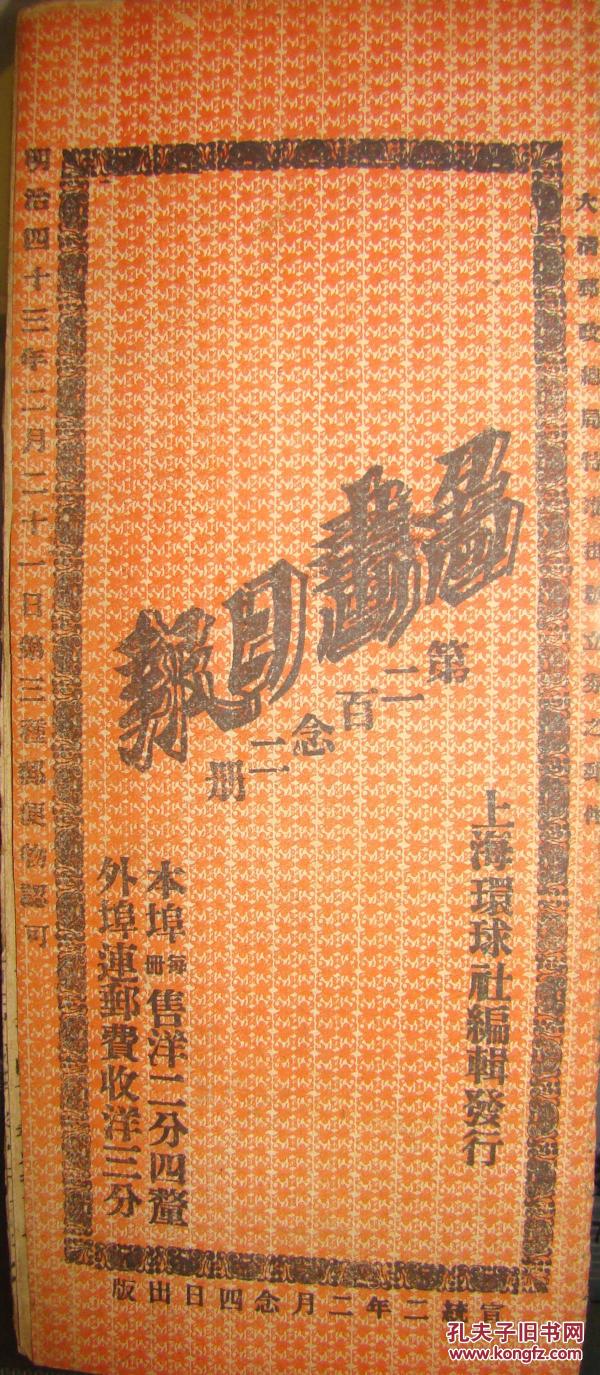 大清郵政總局特准掛號立劵之郵件
圖畫日報
第二百念二册
上海環球社編輯發行
本埠每册售洋二分四釐
外埠連郵費收洋三分
明治四十三年三月二十一日第三種郵便物認可
宣統二年二月念四日出版
孔夫子旧书网
www.kongfz.com